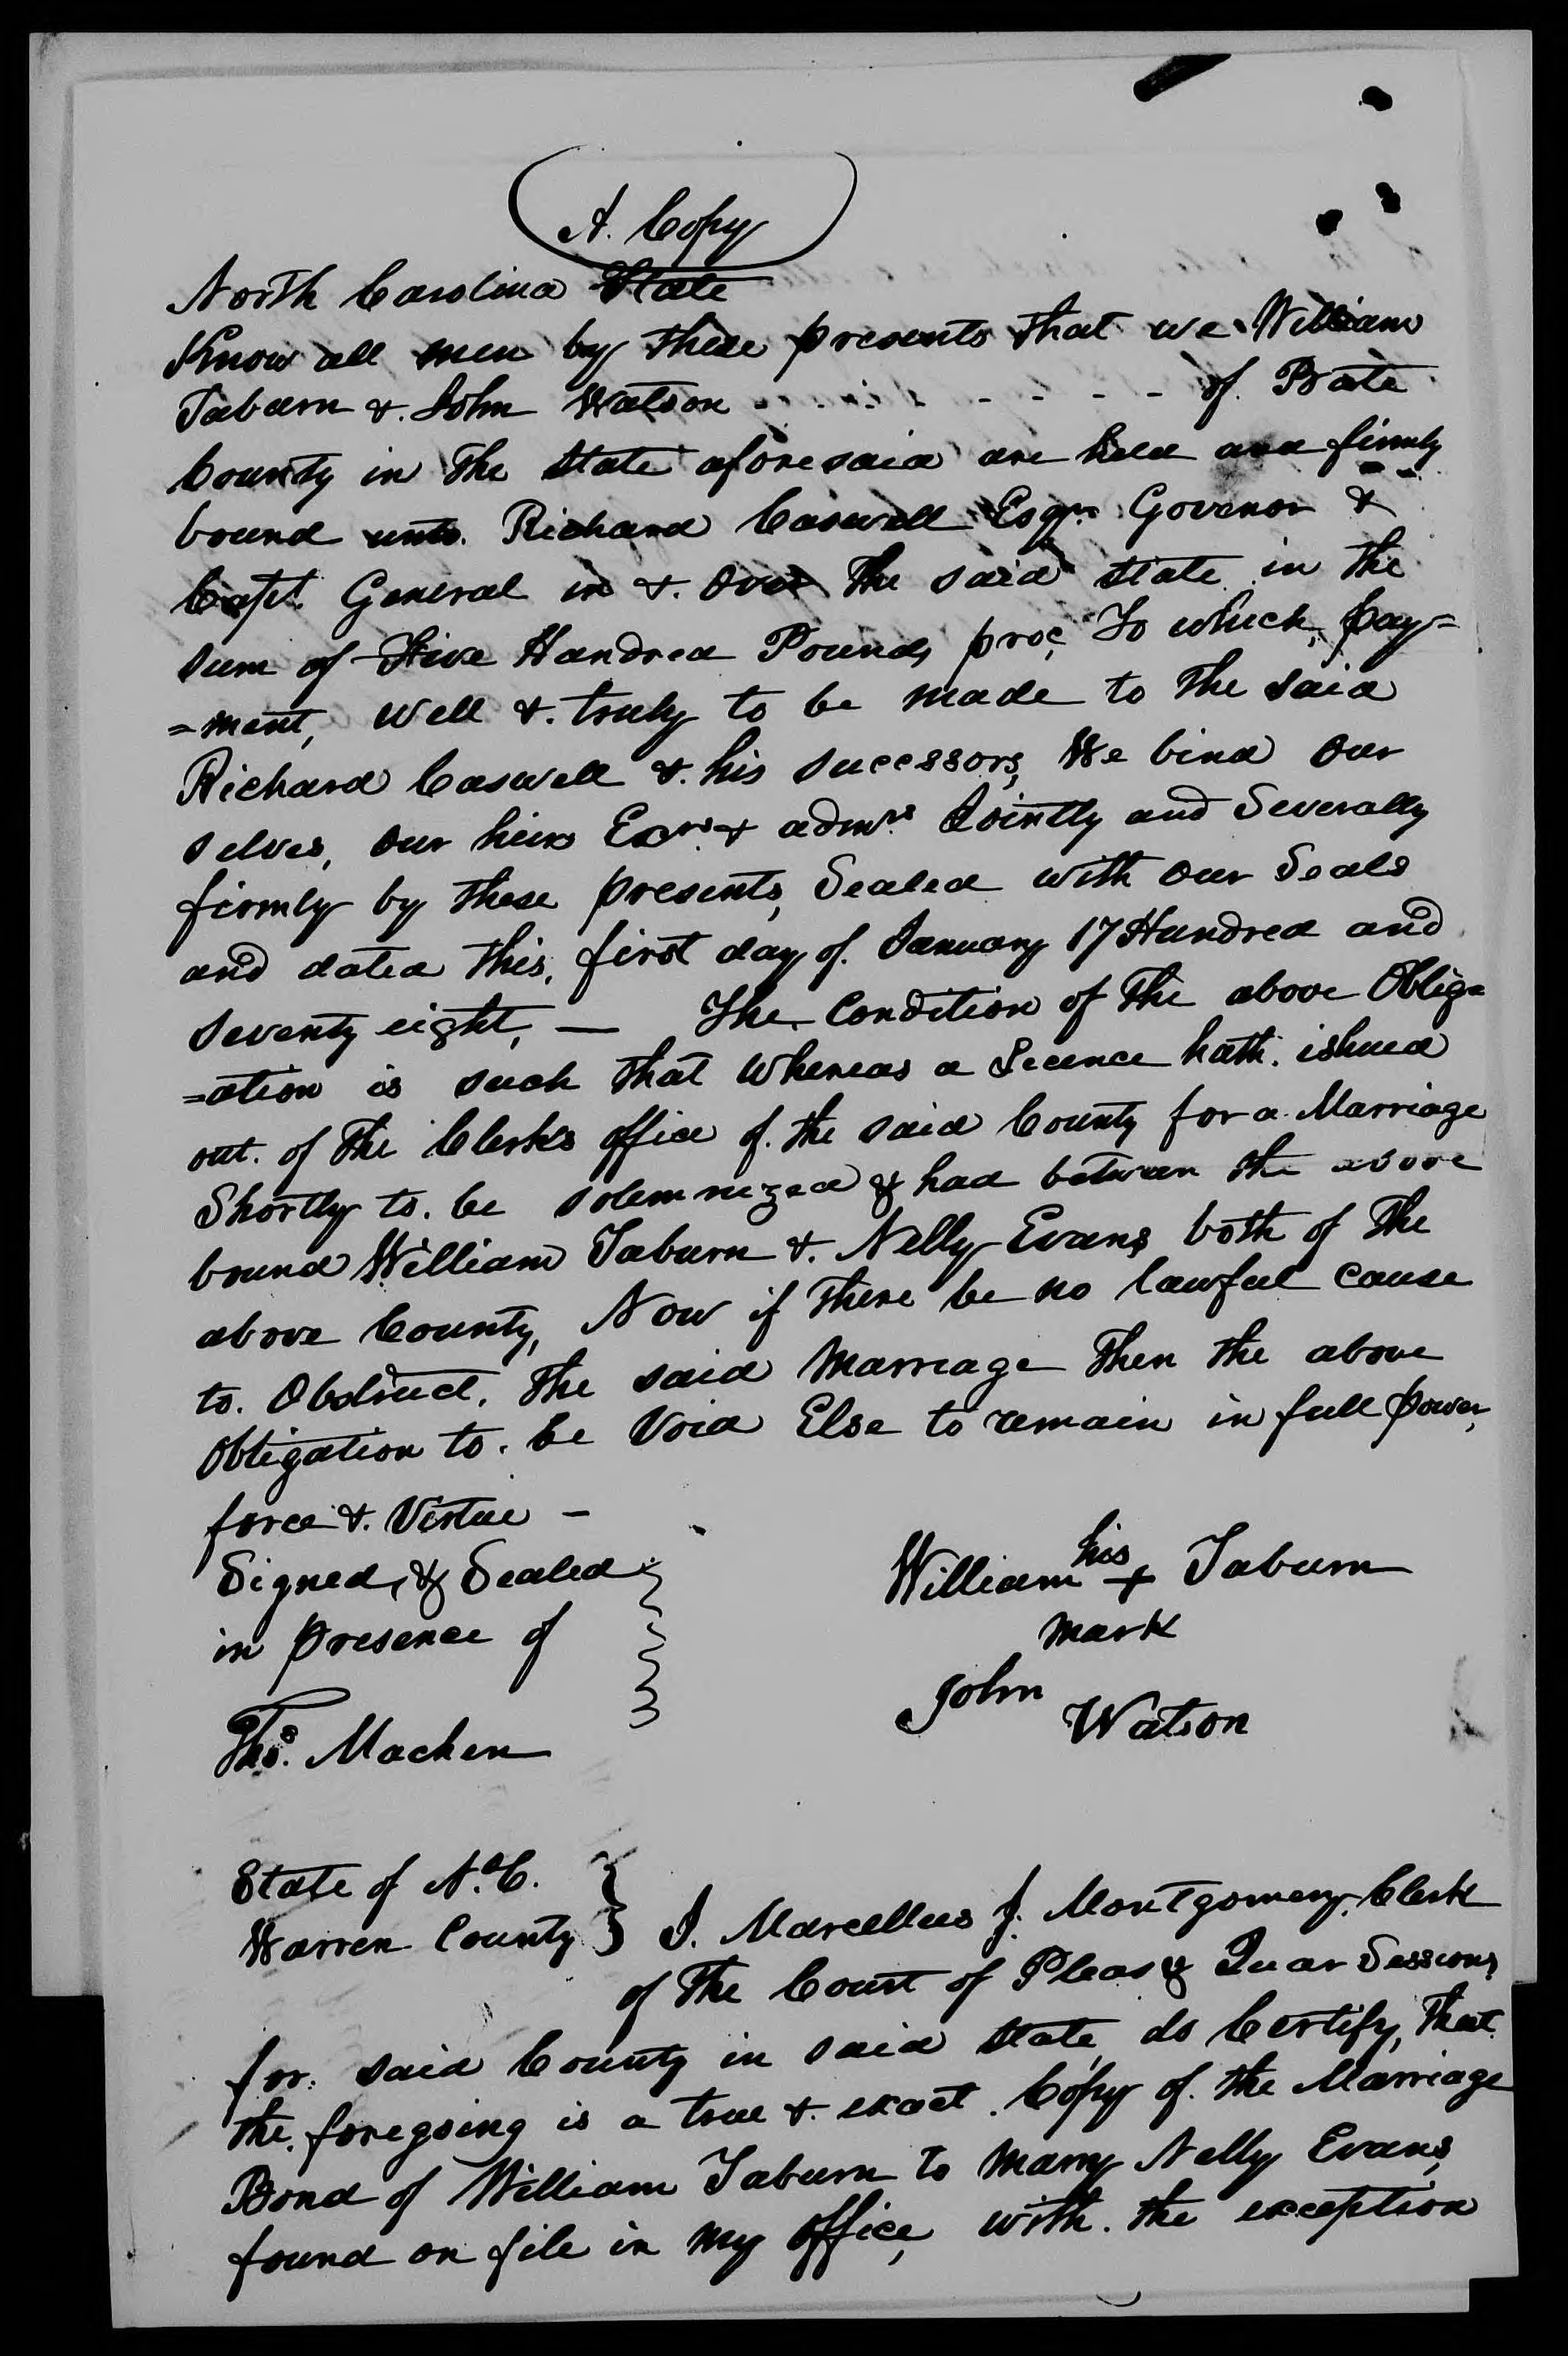 A. Copy
North Carolina State
Know all men by these presents that we William
Taburn &. John Watson - - - - - - of. Bute
County in the State aforesaid are held and firmly
bound unto. Richard Caswell Esqr. Govenor &
Capt. General in &. over the said state in the
sum of Five Hundred Pounds proc, To which, pay=
=ment, well &. truly to be made to the said
Richard Caswell &. his successors, We bind our
selves, our heirs Exrs. & admrs. Jointly and Severally
firmly by these presents, Sealed with our Seals
and dated this, first day of. January 17 Hundred and
seventy eight, — The Condition of the above Oblig=
=ation is such that whereas a Licence hath. ishued
out. of the Clerk's office of. the said County for a Marriage
Shortly to. be solemnized & had between the above
bound William Taburn &. Nelly Evans both of the
above County, Now if there be no lawful cause
to. Obstruct. the said Marriage Then the above
Obligation to. be Void Else to remain in full power,
force &. Virtue -
Signed, & Sealed
in presence of
Thos. Machen
his
William + Taburn
mark
John
Watson
State of N. C.
Warren County } I. Marcellus J. Montgomery, Clerk
of the Court of Pleas & Quar Sessions,
for. said County in said State, do Certify, that
the. foregoing is a true &. exact. Copy of. the Marriage
Bond of William Taburn to Marry Nelly Evans,
found on file in my office, with. the exception